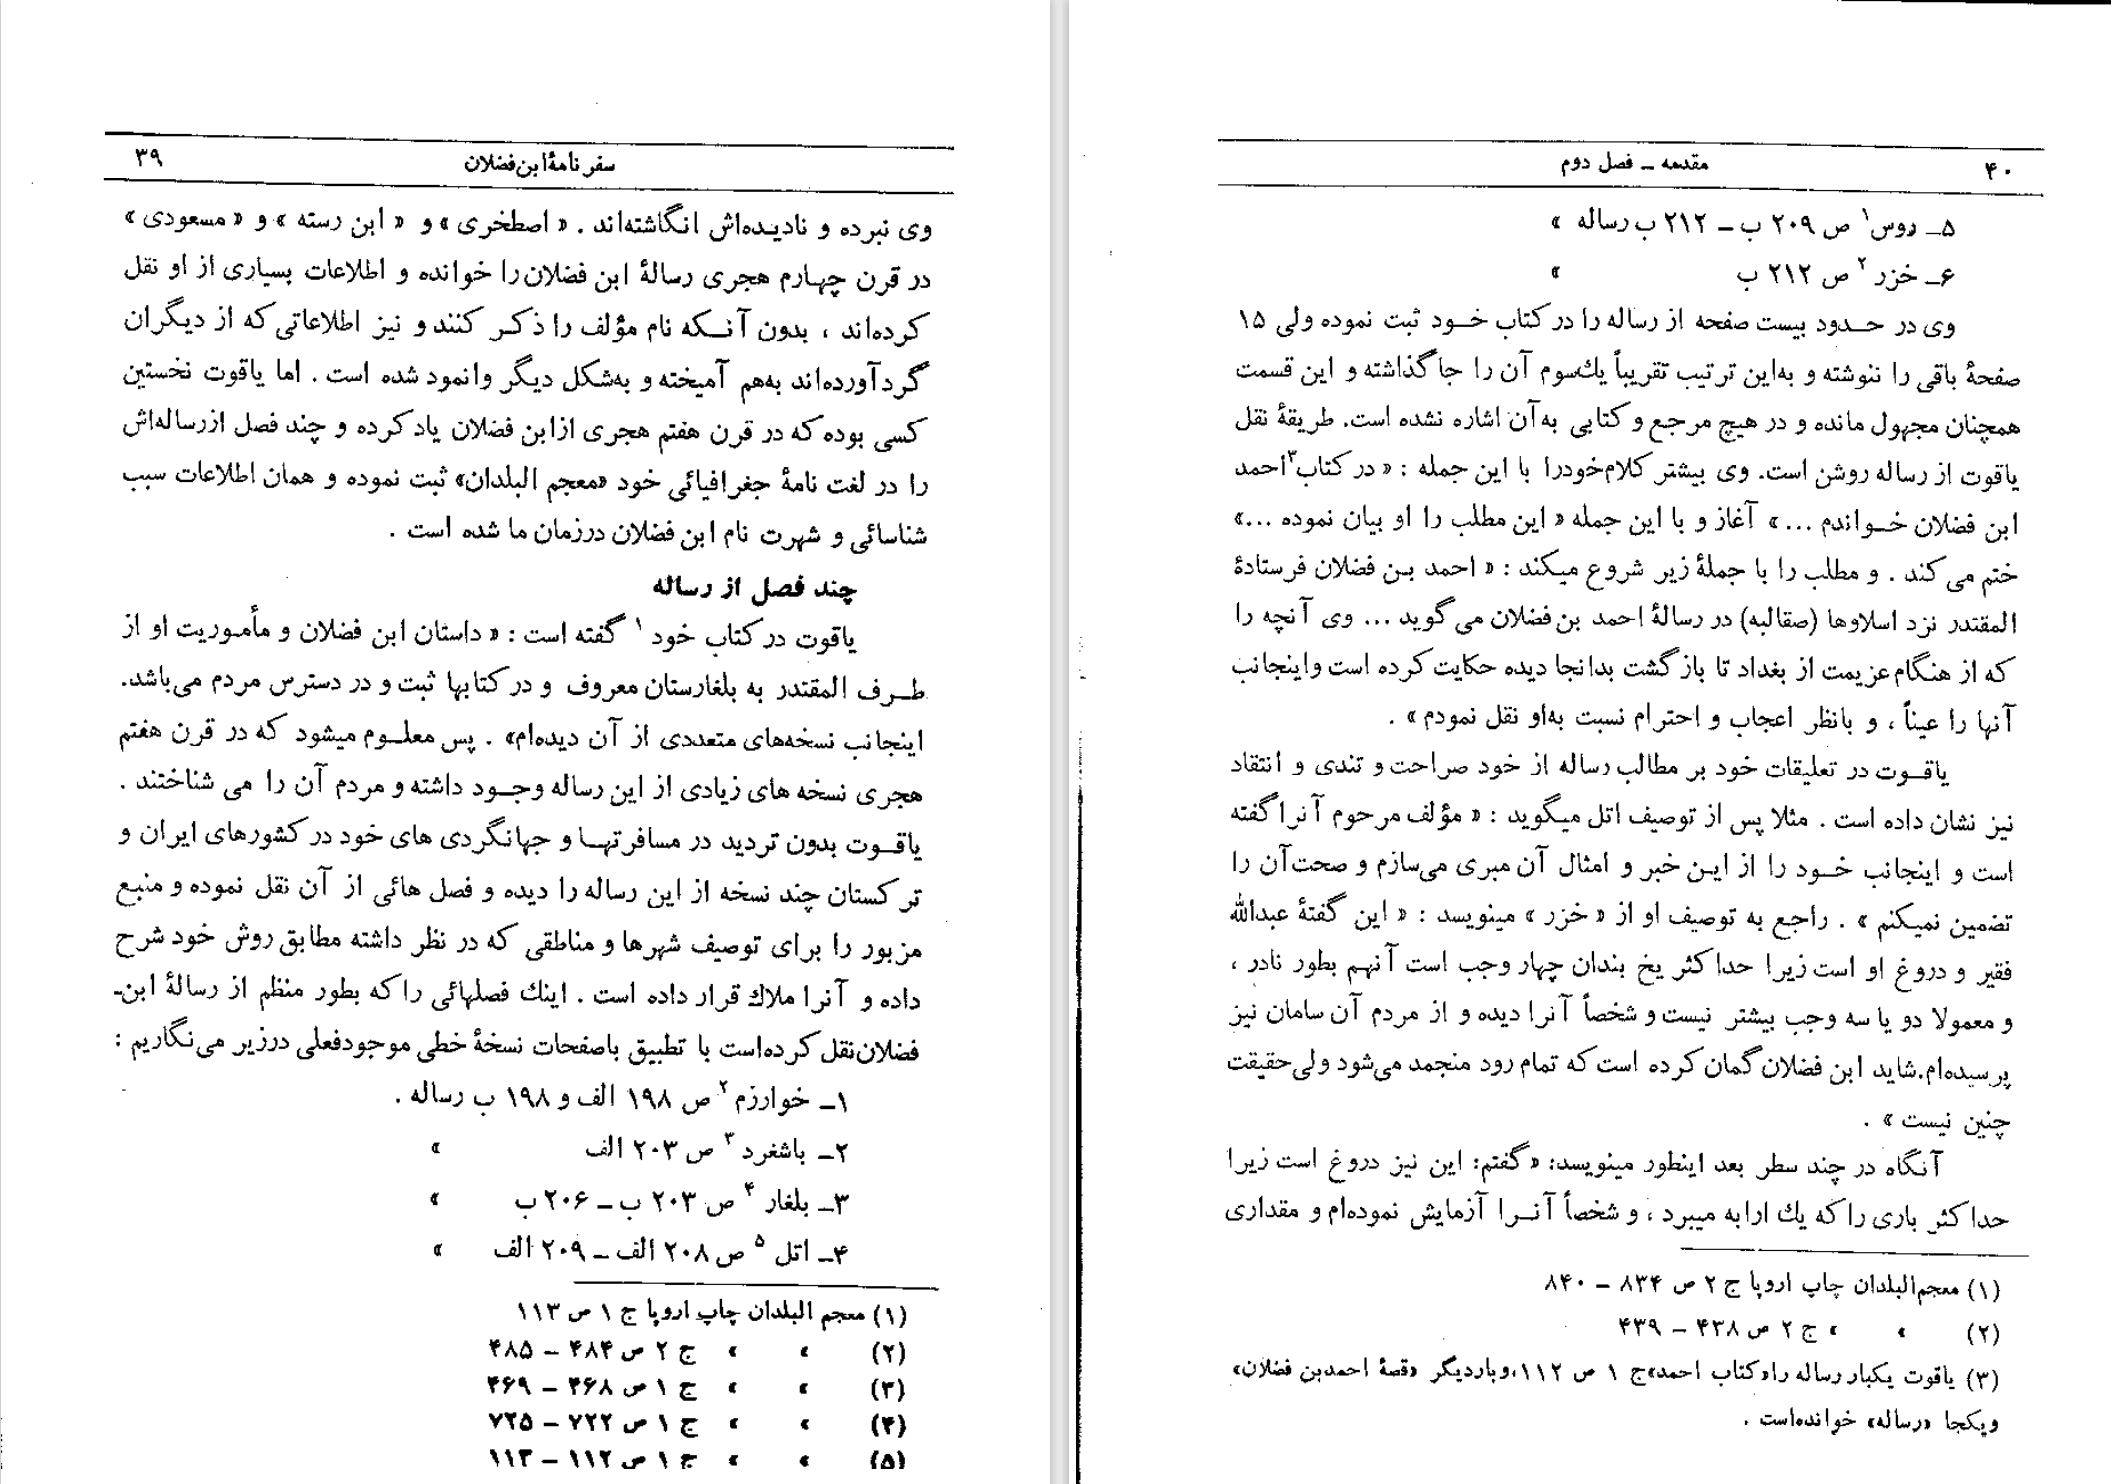 سفر نامهٔ ابن فضلان ۳۹
وی نبرده و نادیده‌اش انگاشته‌اند . « اصطخری » و « ابن رسته » و « مسعودی »
در قرن چهارم هجری رسالهٔ ابن فضلان را خوانده و اطلاعات بسیاری از او نقل
کرده‌اند ، بدون آنکه نام مؤلف را ذکر کنند و نیز اطلاعاتی که از دیگران
گرد آورده‌اند به‌هم آمیخته و به‌شکل دیگر وانمود شده است . اما یاقوت نخستین
کسی بوده که در قرن هفتم هجری از ابن فضلان یاد کرده و چند فصل از رساله‌اش
را در لغت نامهٔ جغرافیائی خود «معجم البلدان» ثبت نموده و همان اطلاعات سبب
شناسائی و شهرت نام ابن فضلان در زمان ما شده است .
چند فصل از رساله
یاقوت در کتاب خود ۱ گفته است : « داستان ابن فضلان و مأموریت او از
طرف المقتدر به بلغارستان معروف و در کتابها ثبت و در دسترس مردم می‌باشد.
اینجانب نسخه‌های متعددی از آن دیده‌ام» . پس معلوم میشود که در قرن هفتم
هجری نسخه های زیادی از این رساله وجود داشته و مردم آن را می شناختند .
یاقوت بدون تردید در مسافرتها و جهانگردی های خود در کشورهای ایران و
ترکستان چند نسخه از این رساله را دیده و فصل هائی از آن نقل نموده و منبع
مزبور را برای توصیف شهرها و مناطقی که در نظر داشته مطابق روش خود شرح
داده و آنرا ملاك قرار داده است . اینك فصلهائی را که بطور منظم از رسالهٔ ابن-
فضلان نقل کرده‌است با تطبیق باصفحات نسخهٔ خطی موجود فعلی در زیر می‌نگاریم :
۱ـ خوارزم ۲ ص ۱۹۸ الف و ۱۹۸ ب رساله .
۲ـ باشغرد ۳ ص ۲۰۳ الف »
۳ـ بلغار ۴ ص ۲۰۳ ب ـ ۲۰۶ ب »
۴ـ اتل ۵ ص ۲۰۸ الف ـ ۲۰۹ الف »
(۱) معجم البلدان چاپ اروپا ج ۱ ص ۱۱۳
(۲) » » ج ۲ ص ۴۸۴ ـ ۴۸۵
(۳) » » ج ۱ ص ۴۶۸ ـ ۴۶۹
(۴) » » ج ۱ ص ۷۲۲ ـ ۷۲۵
(۵) » » ج ۱ ص ۱۱۲ ـ ۱۱۳
۴۰ مقدمه ـ فصل دوم
۵ـ روس ۱ ص ۲۰۹ ب ـ ۲۱۲ ب رساله »
۶ـ خزر ۲ ص ۲۱۲ ب »
وی در حدود بیست صفحه از رساله را در کتاب خود ثبت نموده ولی ۱۵
صفحهٔ باقی را ننوشته و به‌این ترتیب تقریباً یك‌سوم آن را جا گذاشته و این قسمت
همچنان مجهول مانده و در هیچ مرجع و کتابی به آن اشاره نشده است. طریقهٔ نقل
یاقوت از رساله روشن است. وی بیشتر کلام خودرا با این جمله : « در کتاب ۳ احمد
ابن فضلان خواندم ...» آغاز و با این جمله « این مطلب را او بیان نموده ...»
ختم می کند . و مطلب را با جملهٔ زیر شروع میکند : « احمد بن فضلان فرستادهٔ
المقتدر نزد اسلاوها (صقالبه) در رسالهٔ احمد بن فضلان می گوید ... وی آنچه را
که از هنگام عزیمت از بغداد تا بازگشت بدانجا دیده حکایت کرده است و اینجانب
آنها را عیناً ، و بانظر اعجاب و احترام نسبت به‌او نقل نمودم » .
یاقوت در تعلیقات خود بر مطالب رساله از خود صراحت و تندی و انتقاد
نیز نشان داده است . مثلا پس از توصیف اتل میگوید : « مؤلف مرحوم آنرا گفته
است و اینجانب خود را از این خبر و امثال آن مبری می‌سازم و صحت آن را
تضمین نمیکنم » . راجع به توصیف او از « خزر » مینویسد : « این گفتهٔ عبدالله
فقیر و دروغ او است زیرا حداکثر یخ بندان چهار وجب است آنهم بطور نادر ،
و معمولا دو یا سه وجب بیشتر نیست و شخصاً آنرا دیده و از مردم آن سامان نیز
پرسیده‌ام. شاید ابن فضلان گمان کرده است که تمام رود منجمد می‌شود ولی حقیقت
چنین نیست » .
آنگاه در چند سطر بعد اینطور مینویسد: «گفتم: این نیز دروغ است زیرا
حداکثر باری را که یك ارابه میبرد ، و شخصاً آنرا آزمایش نموده‌ام و مقداری
(۱) معجم‌البلدان چاپ اروپا ج ۲ ص ۸۳۴ ـ ۸۴۰
(۲) » » ج ۲ ص ۴۳۸ ـ ۴۳۹
(۳) یاقوت یکبار رساله را «کتاب احمد» ج ۱ ص ۱۱۲، و باردیگر «قصهٔ احمدبن فضلان»
و یکجا «رساله» خوانده‌است .